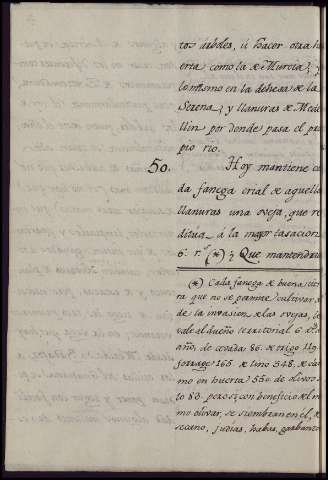 tos árboles, ú hacer otra hu
erta como la de Murcia, y
lo mismo en la dehesa de la
Serena, y llanuras de Mede
llin por donde pasa el pro
pio rio.
50. Hoy mantiene ca
da fanega erial de aquella
llanuras una oveja, que re
ditúa á la mayor tasacion
6 r.s (*) ¿Que mantendra
(*) Cada fanega de buena tier
ra que no se permite cultivar á
de la invasion de las ovejas,
vale al dueño territorial 6 r.s
años, de cevada 86. de trigo 119
forrage 165. de lino 348. de cáña
mo en huerta 550. de olivos
to 80. pero si con beneficio del mis
mo olivar, se siembran en el, de
secano, judias, habas, garbanzo